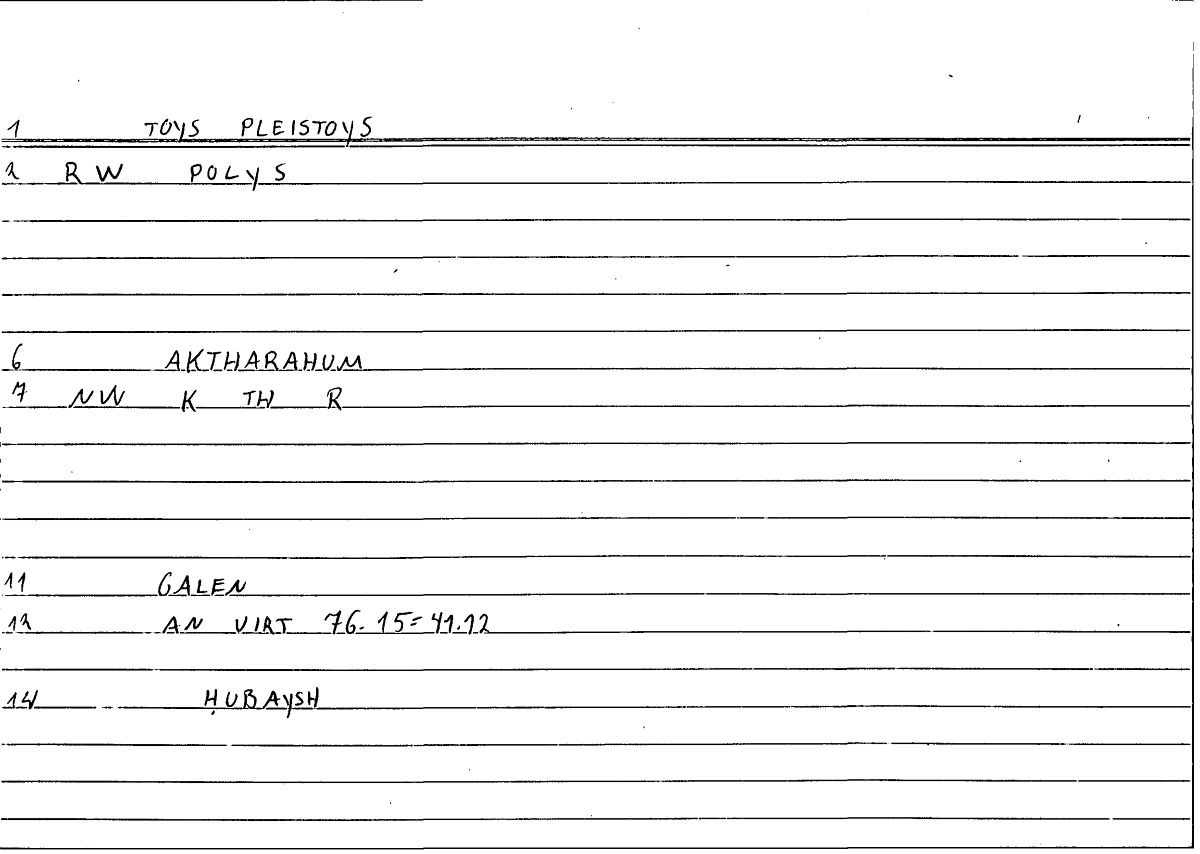 1 TOYS PLEISTOYS
2 RW POLYS
6 AKTHARAHUM
7 NW K TH R
11 GALEN
12 AN VIRT 76.15=41.12
14 ḤUBAYSH